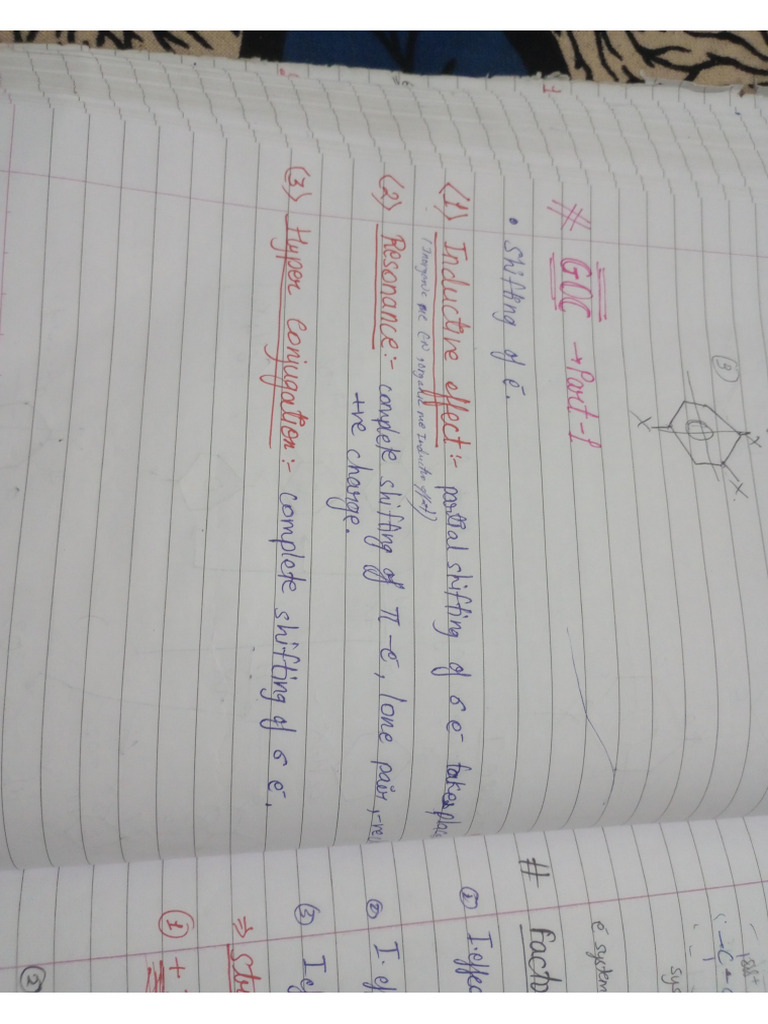 (3)
X
X
X
# GOC → Part-1
• Shifting of e⁻.
(1) Inductive effect :- partial shifting of σ e⁻ takes plac
(Inorganic me EN, organic me Inductive effect)
(2) Resonance :- complete shifting of π-e⁻, lone pair, -ve
+ve charge.
(3) Hyper Conjugation :- complete shifting of σ e⁻.
e⁻ system
sys
# Facto
① I. effec
② I. ef
③ I ef
⇒ Str
① +
②